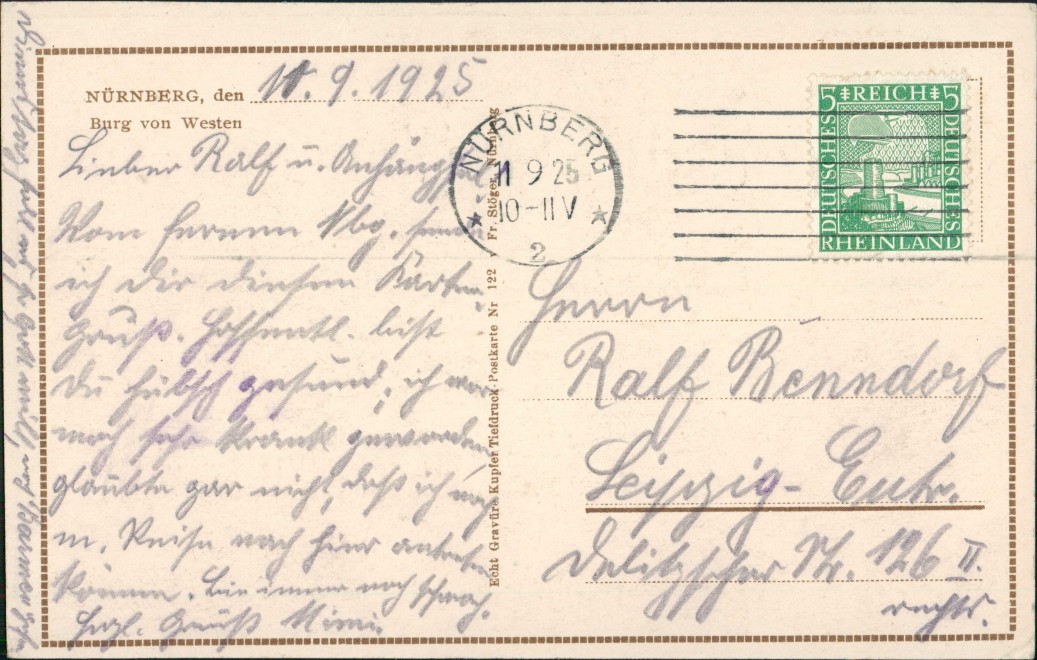 NÜRNBERG, den 11.9.1925
Burg von Westen
Lieber Ralf u. Anhängsel
Vom fernen Nbg. sende
ich dir diesen Karten
gruß. Hoffentl. bist
Du hübsch gesund, ich war
noch sehr krank geworden
glaubte gar nicht, daß ich noch
m. Reise nach hier antreten
können. Bin immer noch schwach.
Herzl. Gruß Mimi.
Echt Gravüre Kupfer Tiefdruck-Postkarte Nr 122 v Fr. Stöger, Nürnberg
NÜRNBERG
11 9 25
10-11 V
2
5 REICH 5
DEUTSCHES
DEUTSCHES
RHEINLAND
Herrn
Ralf Benndorf
Leipzig-Eutr.
Delitzscher Str. 126 II.
rechts.